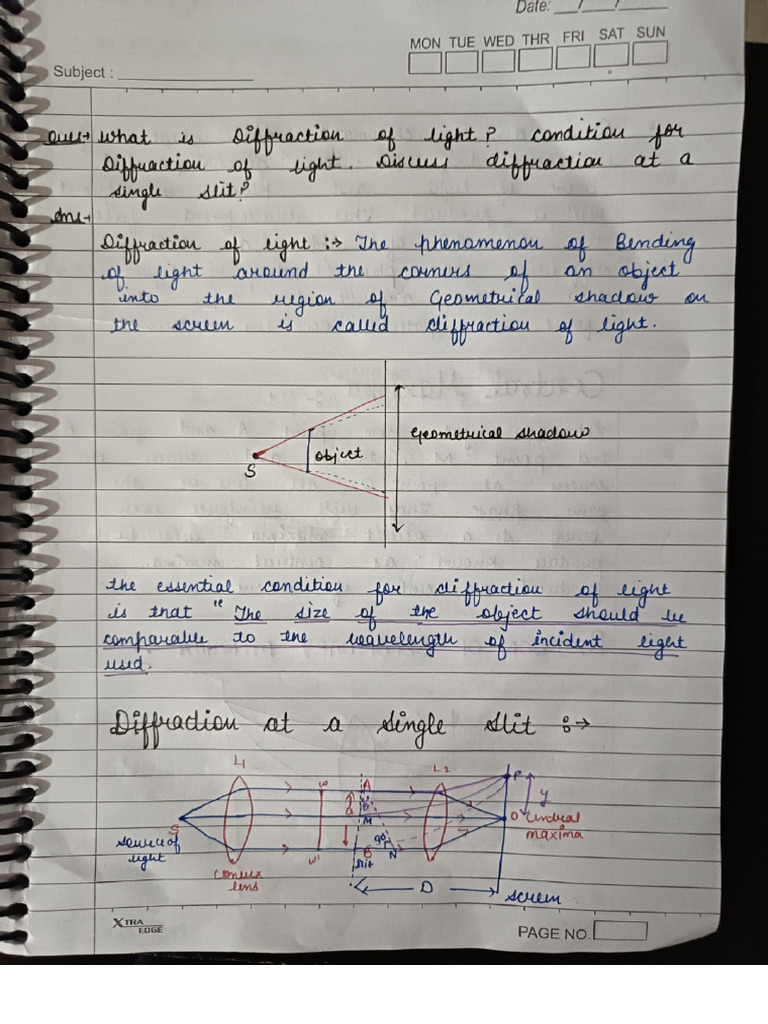 Date: __/__/__
MON TUE WED THR FRI SAT SUN
Subject : ____________
Ques→ What is Diffraction of light? condition for
Diffraction of light. Discuss diffraction at a
single slit?
Ans→
Diffraction of light :→ The phenomenon of Bending
of light around the corners of an object
into the region of Geometrical shadow on
the screen is called diffraction of light.
Geometrical shadow
object
S
the essential condition for diffraction of light
is that "The size of the object should be
comparable to the wavelength of incident light
used.
Diffraction at a single slit :→
L1
L2
P
W
A
y
d
θ
M
S
O
central
maxima
source of
light
90°
N
W'
B
slit
convex
lens
D
screen
XTRA
EDGE
PAGE NO.